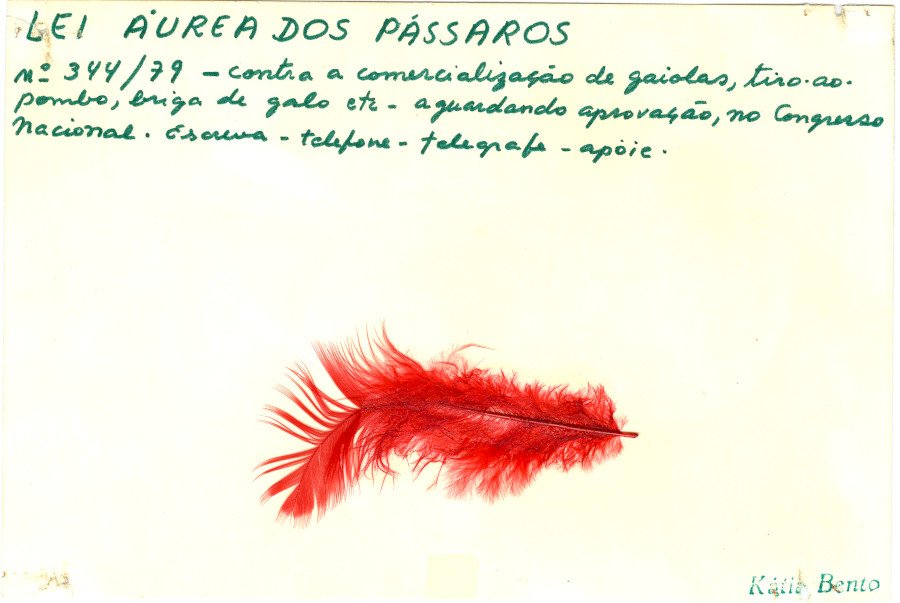 LEI ÁUREA DOS PÁSSAROS
nº 344/79 - contra a comercialização de gaiolas, tiro-ao-
pombo, briga de galo etc - aguardando aprovação, no Congresso
Nacional. Escreva - telefone - telegrafe - apóie.
Kátia Bento